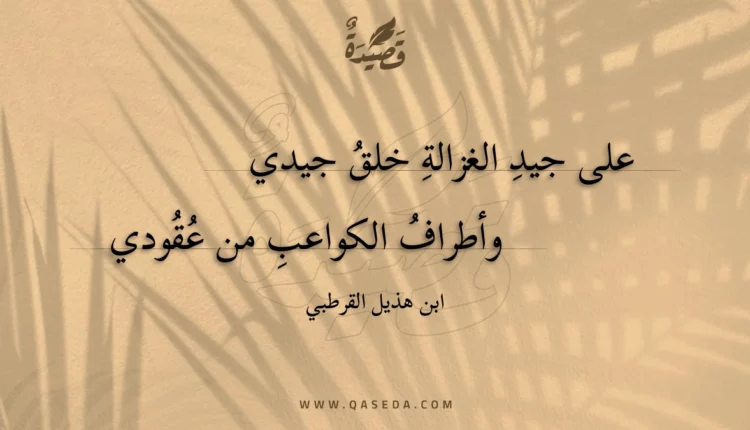 قَصِيْدَةٌ
على جيدِ الغزالةِ خلقُ جيدي
وأطرافُ الكواعبِ من عُقُودي
ابن هذيل القرطبي
WWW.QASEDA.COM